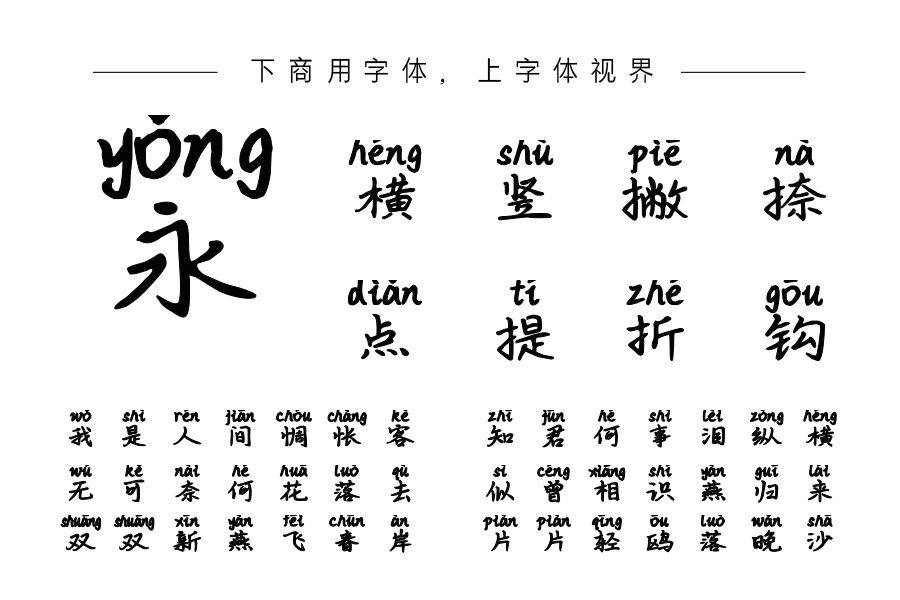 下商用字体，上字体视界
yǒng
永
hēng shù piē nà
横 竖 撇 捺
diǎn tí zhé gōu
点 提 折 钩
wǒ shì rén jiān chóu chàng kè
我 是 人 间 惆 怅 客
wú kě nài hé huā luò qù
无 可 奈 何 花 落 去
shuāng shuāng xīn yàn fēi chūn àn
双 双 新 燕 飞 春 岸
zhī jūn hé shì lèi zòng héng
知 君 何 事 泪 纵 横
sì céng xiāng shí yàn guī lái
似 曾 相 识 燕 归 来
piàn piàn qīng ōu luò wǎn shā
片 片 轻 鸥 落 晚 沙